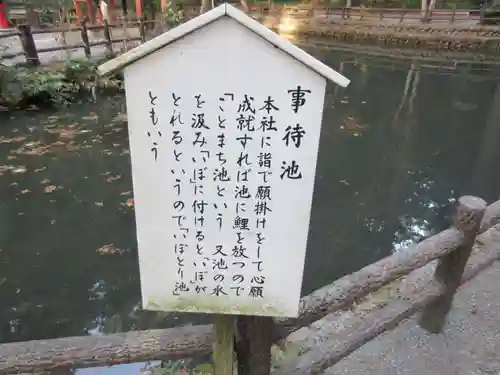 事待池
本社に詣で願掛けをして心願
成就すれば池に鯉を放つので
「ことまち池という 又池の水
を汲みいぼに付けると、いぼが
とれるというので「いぼとり池」
ともいう